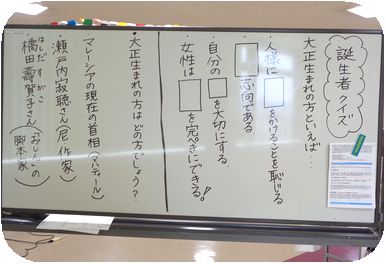 誕生者クイズ
大正生まれの方といえば…
・人様に□をかけることを恥じる
・□志向である
・自分の□を大切にする
・女性は□を完ぺきにできる!
・大正生まれの方はどの方でしょう?
マレーシアの現在の首相(マハティール)
・瀬戸内寂聴さん(尼、作家)
はしだ すがこ
・橋田壽賀子さん(「おしん」の脚本家)